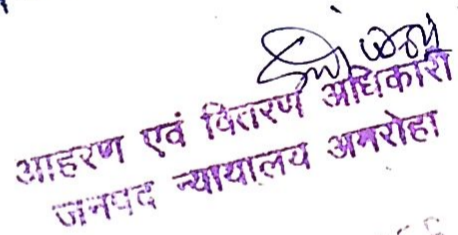 आहरण एवं वितरण अधिकारी
जनपद न्यायालय अमरोहा